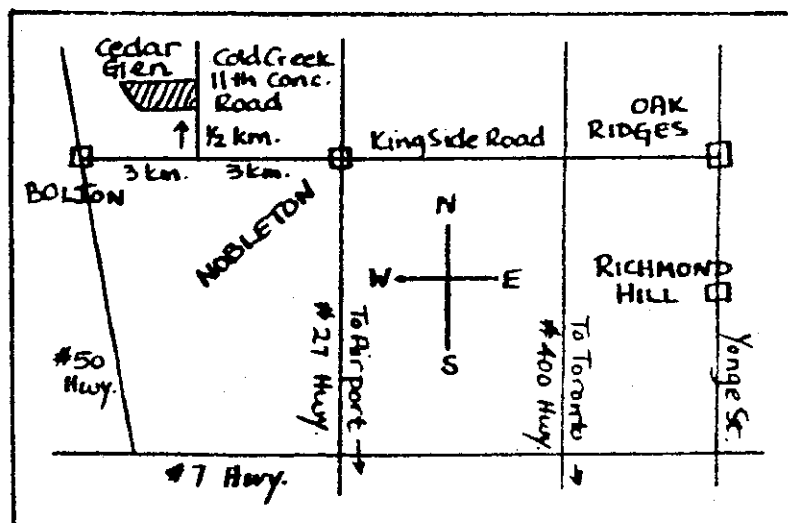 Cedar
Glen
Cold Creek
11th Conc.
Road
1/2 km.
King Side Road
OAK
RIDGES
3 km.
3 km.
BOLTON
NOBLETON
N
W
E
S
RICHMOND
HILL
#50
Hwy.
#27 Hwy.
To Airport
#400 Hwy.
To Toronto
Yonge St.
#7 Hwy.